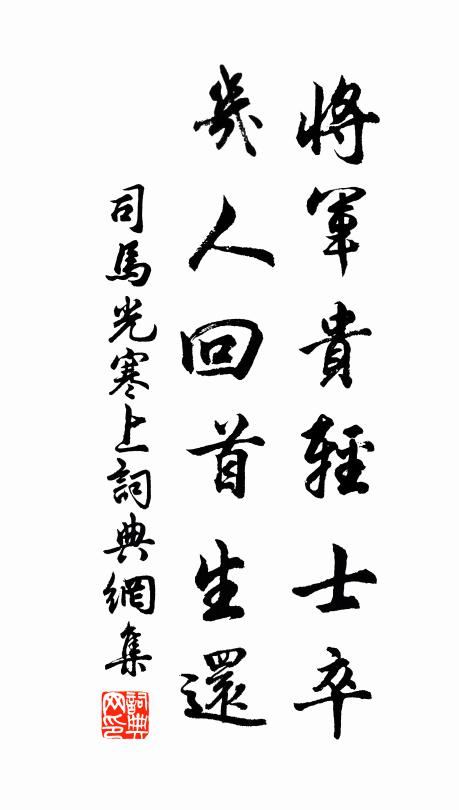 將軍貴輕士卒
幾人回首生還
司馬光寒上詞典網集
詞典網印